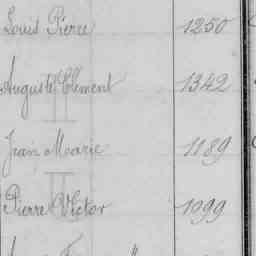 Louis Pierre 1250
Auguste Clement 1342
Jean Marie 1189
Pierre Victor 1099